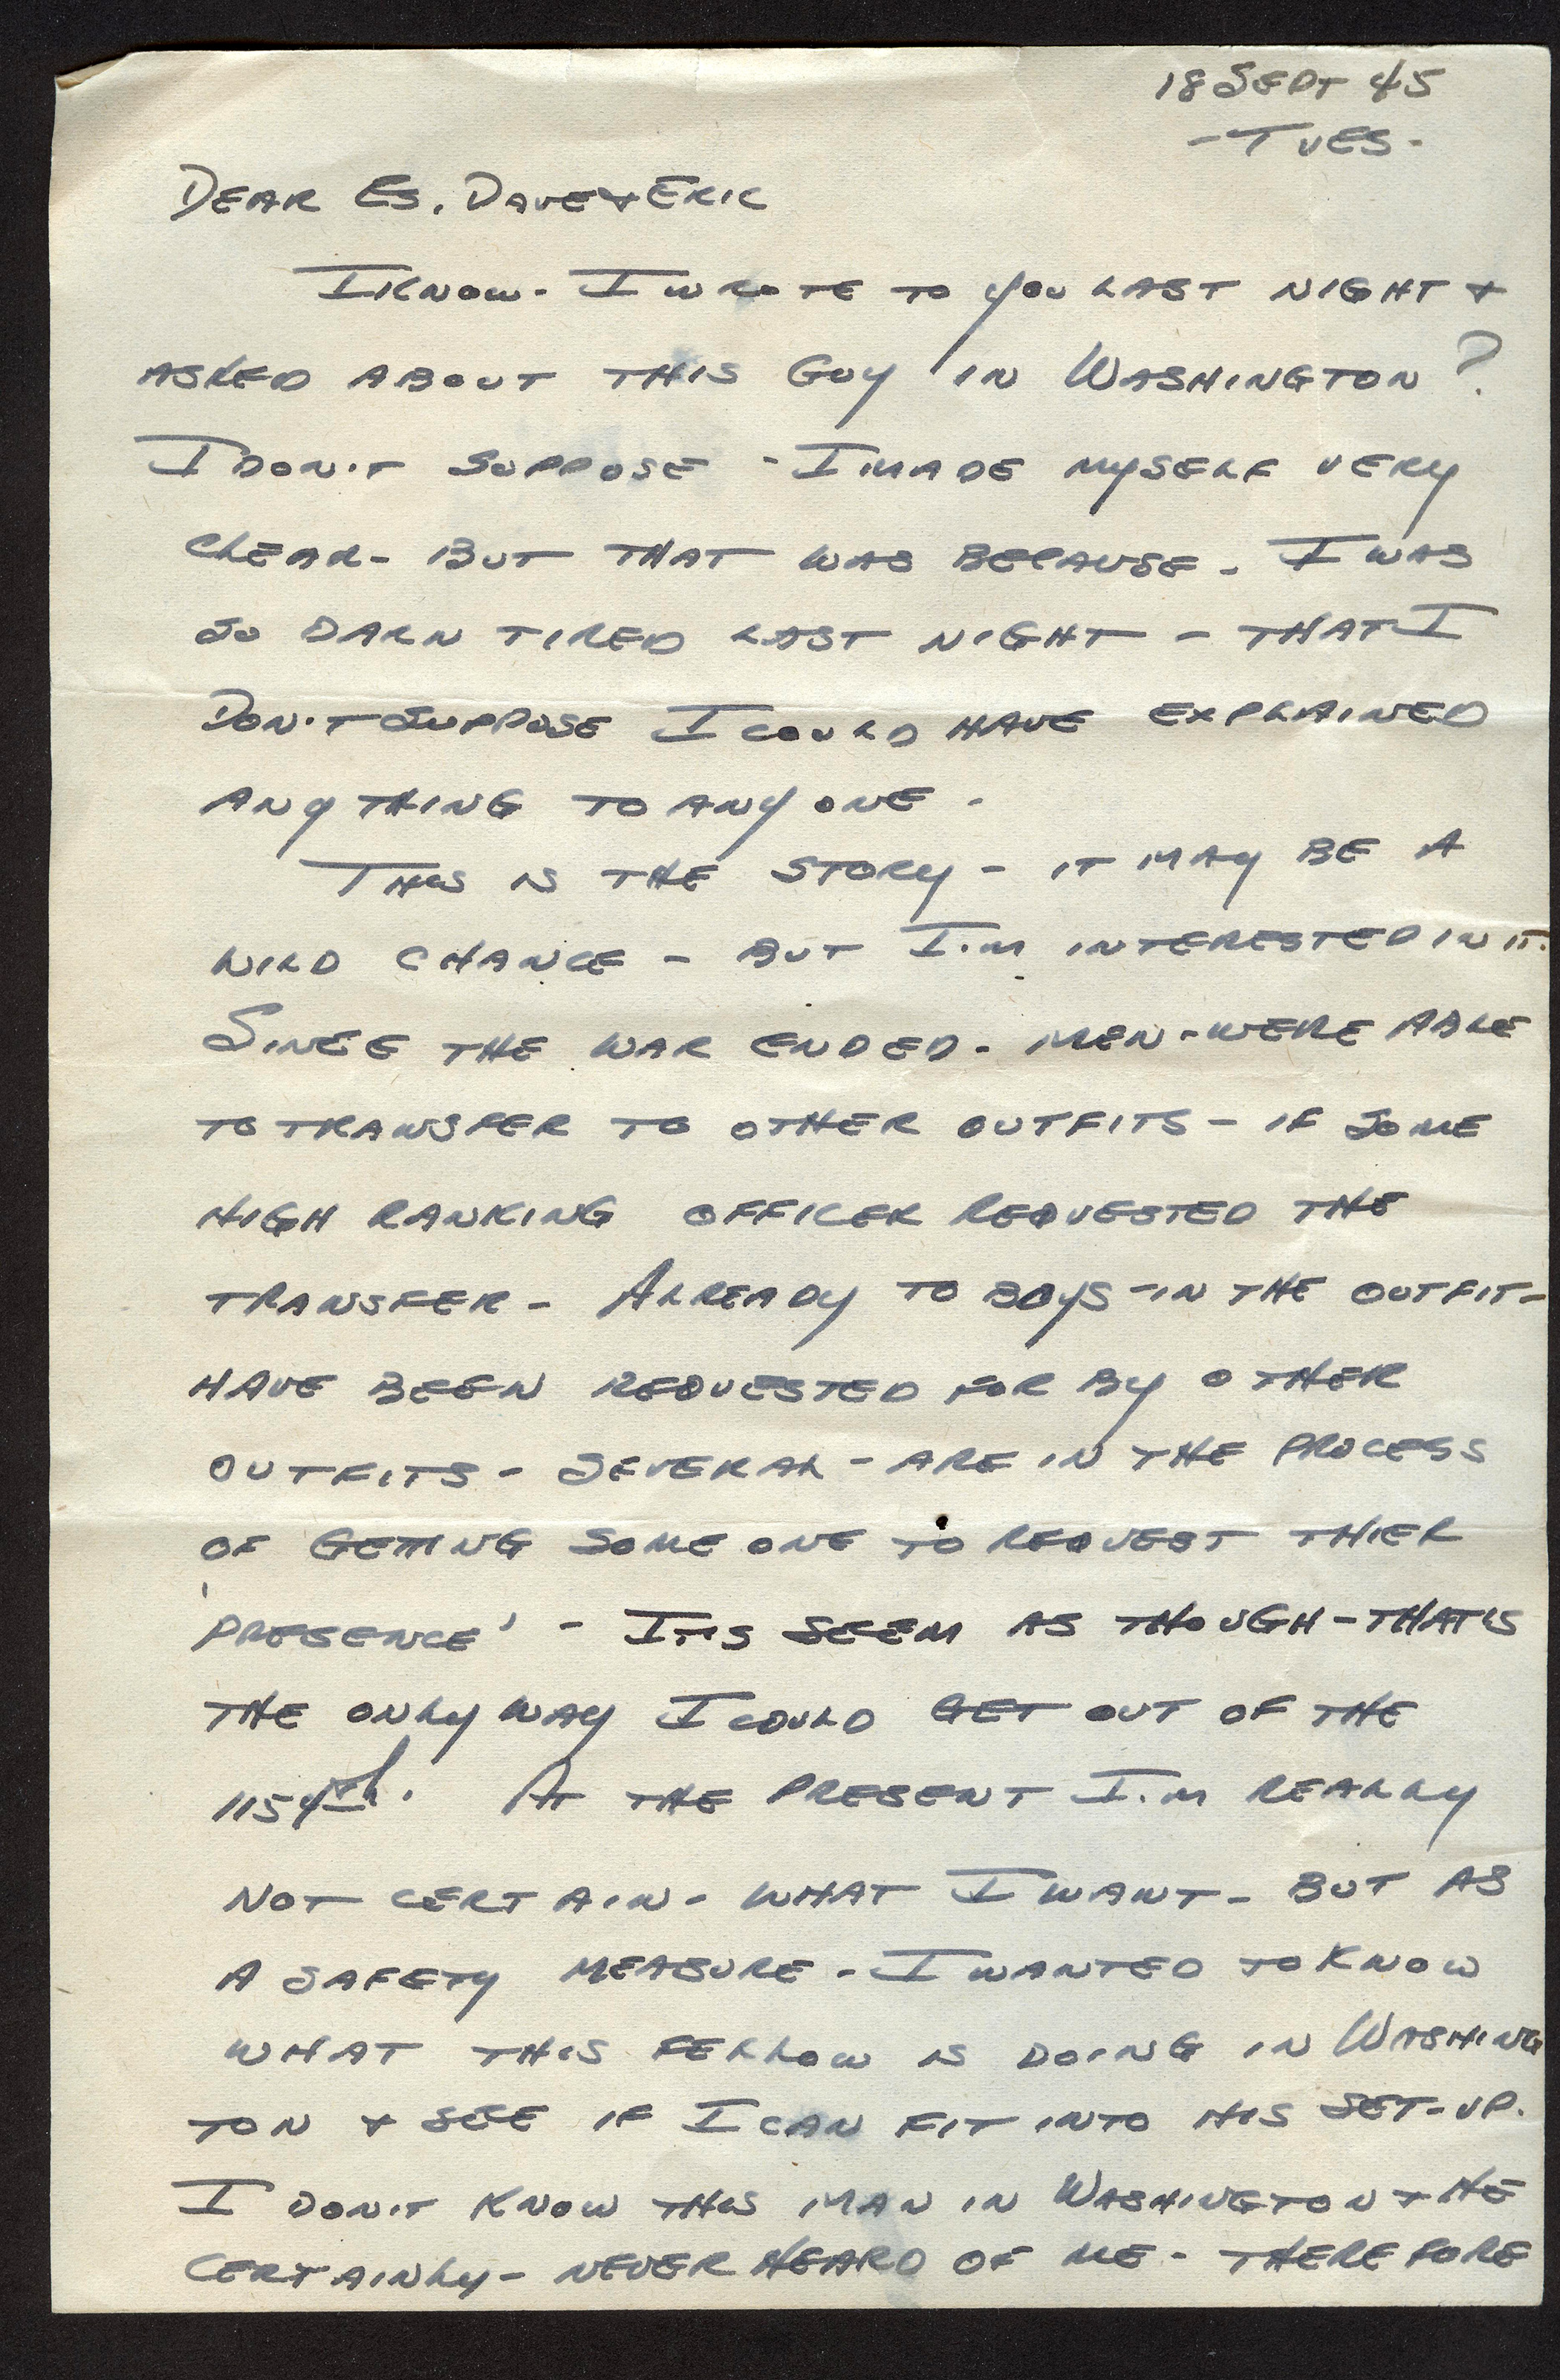 18 SEPT 45
- TUES -
DEAR ES, DAVE & ERIC
I KNOW - I WROTE TO YOU LAST NIGHT &
ASKED ABOUT THIS GUY IN WASHINGTON?
I DON'T SUPPOSE - I MADE MYSELF VERY
CLEAR - BUT THAT WAS BECAUSE - I WAS
SO DARN TIRED LAST NIGHT - THAT I
DON'T SUPPOSE I COULD HAVE EXPLAINED
ANYTHING TO ANYONE -
THIS IS THE STORY - IT MAY BE A
WILD CHANCE - BUT I'M INTERESTED IN IT.
SINCE THE WAR ENDED - MEN - WERE ABLE
TO TRANSFER TO OTHER OUTFITS - IF SOME
HIGH RANKING OFFICER REQUESTED THE
TRANSFER - ALREADY TO BOYS - IN THE OUTFIT -
HAVE BEEN REQUESTED FOR BY OTHER
OUTFITS - SEVERAL - ARE IN THE PROCESS
OF GETTING SOME ONE TO REQUEST THIER
'PRESENCE' - IT'S SEEM AS THOUGH - THAT'S
THE ONLY WAY I COULD GET OUT OF THE
1154th. AT THE PRESENT I'M REALLY
NOT CERTAIN - WHAT I WANT - BUT AS
A SAFETY MEASURE - I WANTED TO KNOW
WHAT THIS FELLOW IS DOING IN WASHING
TON & SEE IF I CAN FIT INTO HIS SET-UP.
I DON'T KNOW THIS MAN IN WASHINGTON & HE
CERTAINLY - NEVER HEARD OF ME - THEREFORE